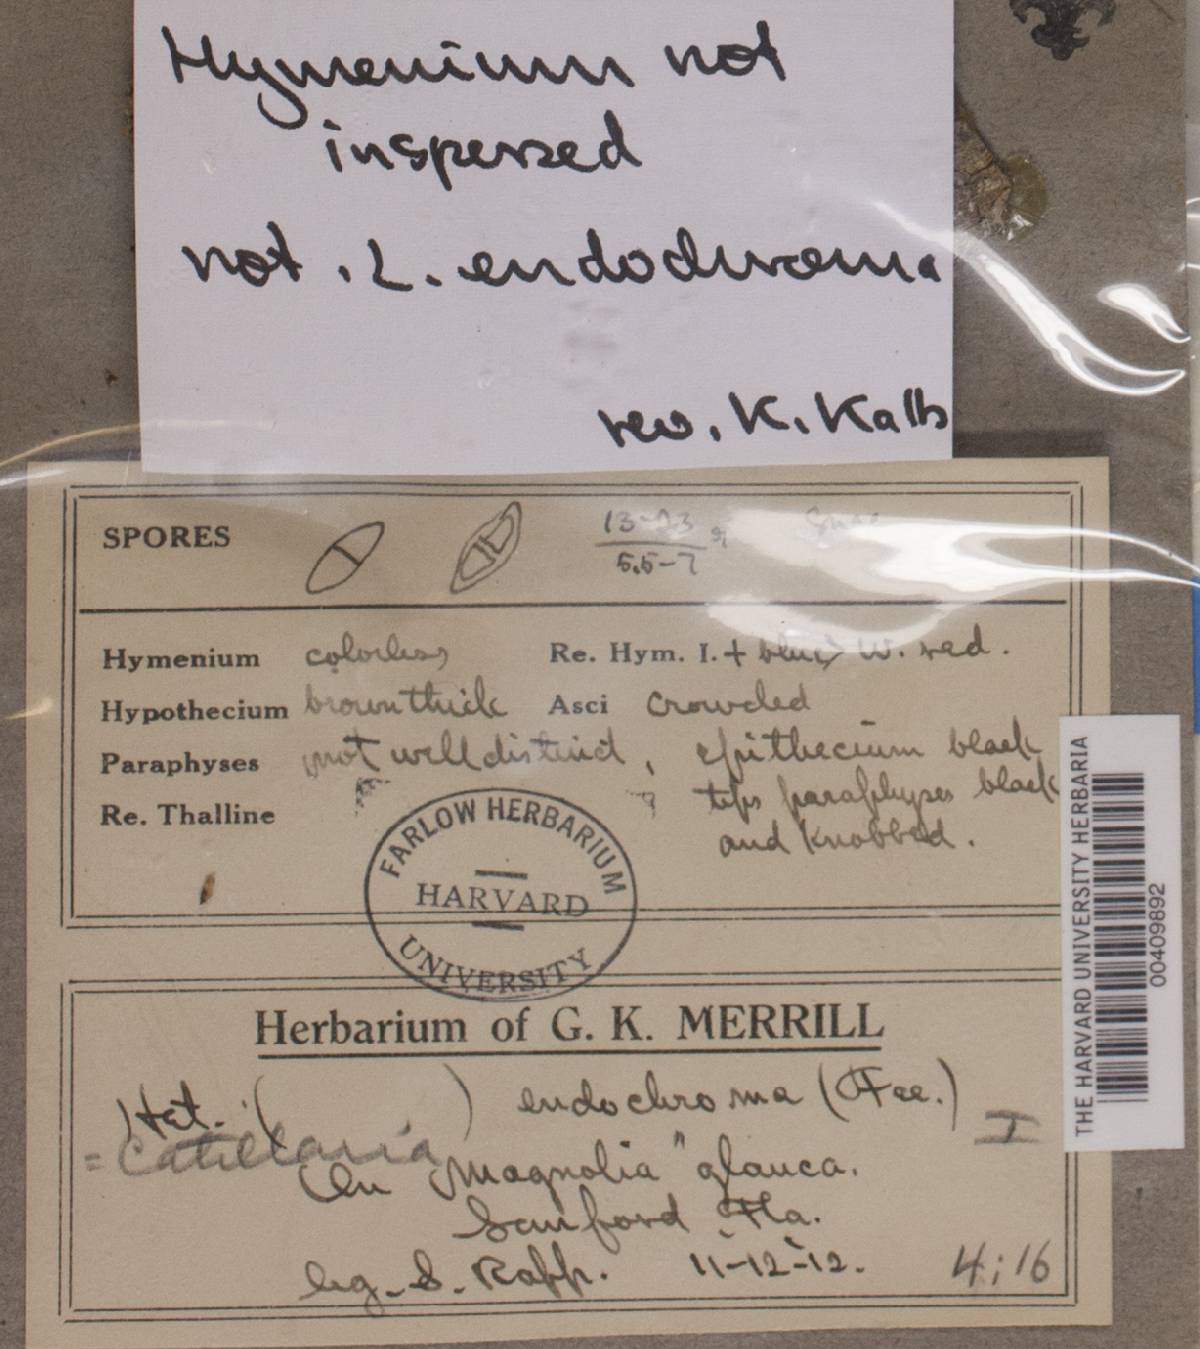 Hymenium not
inspersed
not . L. endochroma
rev. K. Kalb
SPORES 13-23
5.5-7
Hymenium colorless Re. Hym. I. + blue W. red.
Hypothecium brown thick Asci Crowded
Paraphyses not well distinct, epithecium black
tips paraphyses black
Re. Thalline
and knobbed.
FARLOW HERBARIUM
HARVARD
UNIVERSITY
Herbarium of G. K. MERRILL
Het. ( ) endochroma (Fee.)
= Catillaria I
On Magnolia " glauca.
Sanford Fla.
leg. S. Rapp. 11-12-12. 4:16
THE HARVARD UNIVERSITY HERBARIA
00409892